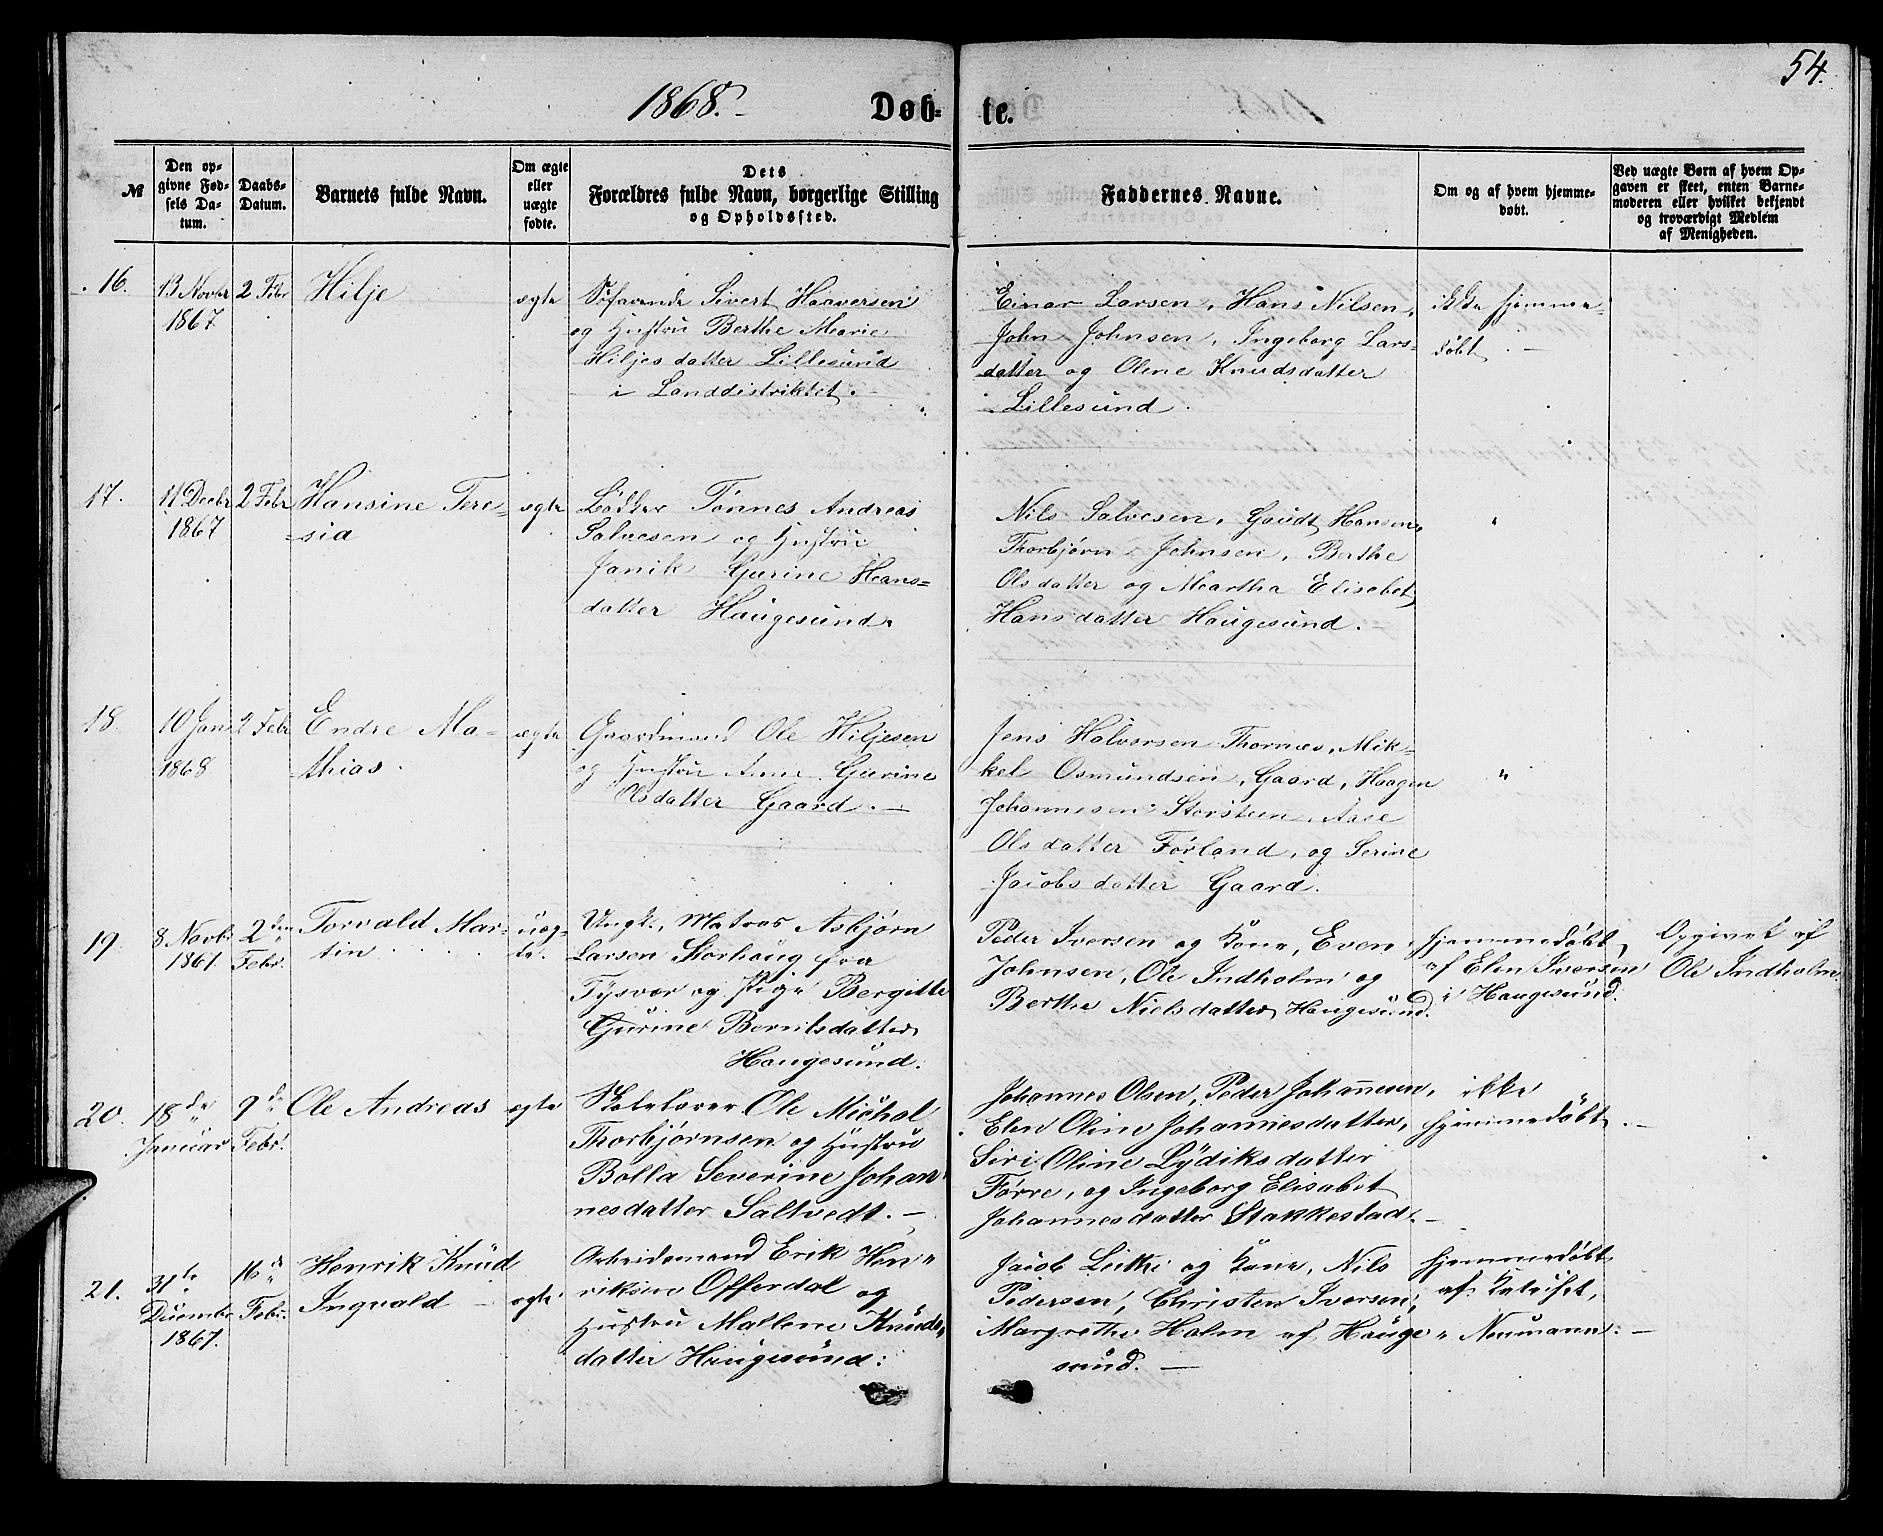 54.
1868.
Døb-
te.
№
Den op-
givne Fød-
sels Da-
tum.
Daabs-
Datum.
Barnets fulde Navn.
Om ægte
eller
uægte
fødte.
Dets
Forældres fulde Navn, borgerlige Stilling
og Opholdssted.
Faddernes Navne.
Om og af hvem hjemme-
døbt.
Ved uægte Børn af hvem Op-
gaven er skeet, enten Barne-
moderen eller hvilket bekjendt
og troværdigt Medlem
af Menigheden.
16.
13 Novbr
1867
2 Febr
Hilje
ægte
Søfarende Sivert Haaversen
og Hustru Berthe Marie
Hiljesdatter Lillesund
i Landdistriktet.
Einar Larsen, Hans Nilsen,
John Johnsen, Ingeborg Lars-
datter og Oline Knudsdatter
Lillesund.
ikke hjemme-
døbt.
17.
11 Decbr
1867
2 Febr
Hansine Tere-
sia
ægte
Bødker Tønnes Andreas
Salvesen og Hustru
Janik Gurine Hans-
datter Haugesund.
Nils Salvesen, Gaudt Hansen,
Thorbjørn Johnsen, Berthe
Olsdatter og Martha Elisabet
Hansdatter Haugesund.
"
18.
10 Janr
1868
2 Febr
Endre Ma-
thias.
ægte
Gaardmand Ole Hiljesen
og Hustru Anne Gurine
Olsdatter Gaard.
Jens Halvorsen Thornæs, Mik-
kel Osmundsen, Gaard, Haagen
Johannesen Storsteen, Aase
Olsdatter Førland, og Serine
Jacobsdatter Gaard.
"
19.
8 Novbr
1861
2den
Febr.
Torvald Mar-
tin
uæg-
te.
Ungk., Matros Asbjørn
Larsen Storhaug fra
Tysvær og Pige Bergitte
Gurine Berntsdatter
Haugesund.
Peder Iversen og Kone, Even
Johnsen, Ole Indholm og
Berthe Nielsdatter Haugesund.
hjemmedøbt
af Elen Iversen
i Haugesund.
Opgivet af
Ole Indholm.
20.
18de
Januar
9de
Febr.
Ole Andreas
ægte
Skolelærer Ole Michal
Thorbjørnsen og Hustru
Bolla Severine Johan-
nesdatter Saltvedt.
Johannes Olsen, Peder Johannesen,
Elen Oline Johannesdatter,
Siri Oline Lydiksdatter
Førre, og Ingeborg Elisabet
Johannesdatter Stakkestad.
ikke
hjemmedøbt.
21.
31te
December
1867.
16de
Febr.
Henrik Knud
Ingvald
ægte
Arbeidsmand Erik Hen-
riksen Offerdal og
Hustru Mallene Knuds-
datter Haugesund.
Jacob Leithe og Kone, Nils
Pedersen, Christen Iversen,
Margrethe Holm af Hauge-
sund.
hjemmedøbt
af Kateket,
Neumann.